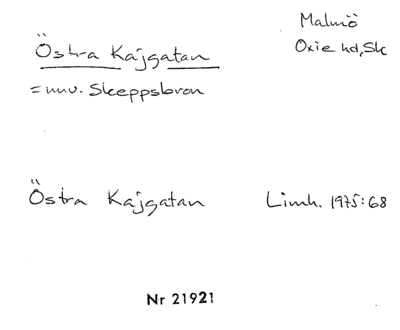 Östra Kajgatan
Malmö
Oxie hd, Sk
= nuv. Skeppsbron
Östra Kajgatan Limh. 1975:68
Nr 21921